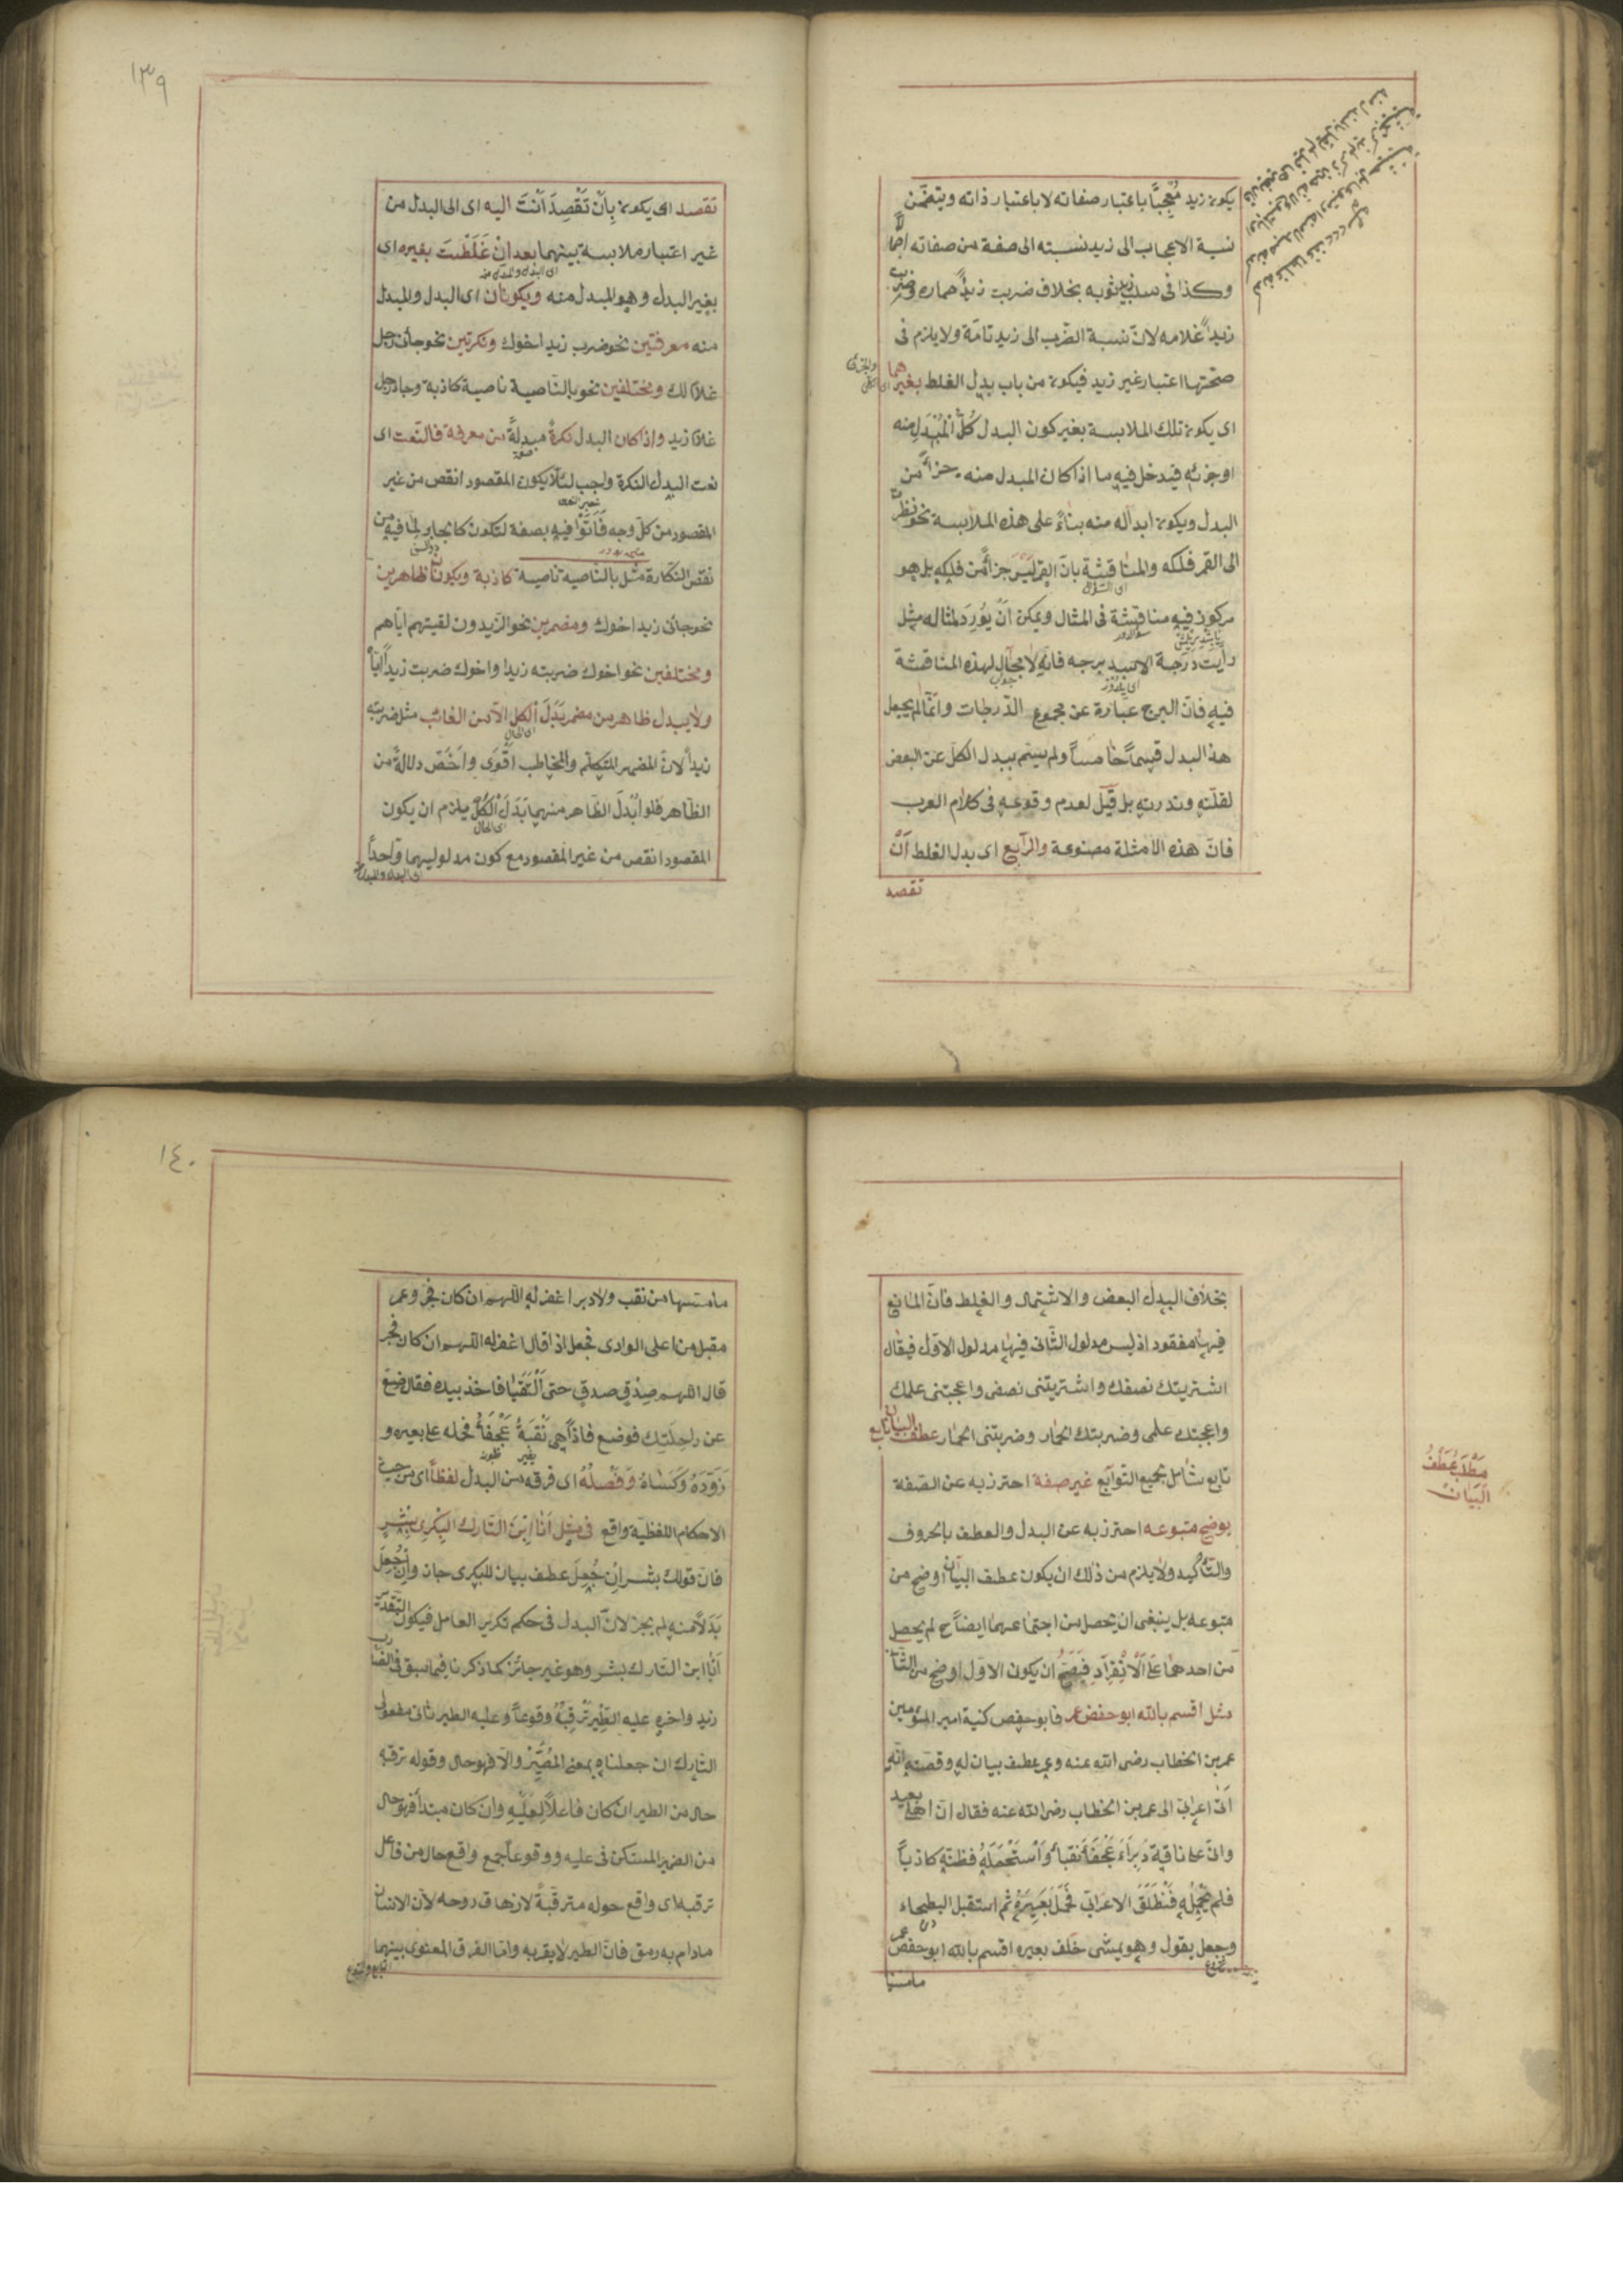 يكون زيد مُعْجِبًا باعتبار صفاته لا باعتبار ذاته ويتضمّن
نسبة الاعجاب الى زيد نسبته الى صفة من صفاته اجمالا
وكذا فى سلب زيد ثوبه بخلاف ضربت زيداً حماره وضربت
زيداً غلامه لانّ نسبة الضّرب الى زيد تامّة ولا يلزم فى
صحّتها اعتبار غير زيد فيكون من باب بدل الغلط بغيرهما
اى يكون تلك الملابسة بغير كون البدل كُلَّ الْمُبْدَلِ منه
او جزئه فيدخل فيه ما اذا كان المبدل منه جزأً من
البدل ويكون ابداله منه بناءً على هذه الملابسة نحو نظرت
الى القمر فلكه والمناقشة بانّ القمر لَيْسَ جزأً من فلكه بل هو
مركوز فيه مناقشة فى المثال ويمكن اَنْ يُورَدَ لمثاله مثل
رأيت درجة الاسد برجه فانّه لا مجال لهذه المناقشة
فيه فانّ البرج عبارة عن مجموع الدّرجات وانّما لم يجعل
هذا البدل قسماً خامساً ولم يسّم ببدل الكلّ عن البعض
لقلّته وندرته بل قيل لعدم وقوعه فى كلام العرب
فانّ هذه الامثلة مصنوعة والرّابع اى بدل الغلط اَنْ
تقصد
١٣٩
تقصد اى يكون بِاَنْ تَقْصِدَ اَنْتَ اليه اى الى البدل من
غير اعتبار ملابسة بينهما بعد انْ غَلَطْتَ بغيره اى
اى البدل والمبدل منه
بغير البدل وهو المبدل منه ويكونان اى البدل والمبدل
منه معرفتين نحو ضرب زيد اخوك ونكرتين نحو جائنى رجل
غلام لك ومختلفين نحو بالنّاصية ناصية كاذبة وجاء رجل
غلام زيد واذا كان البدل نكرةً مبدلةً من معرفة فالنّعت اى
نعت البدل النّكرة واجب لئلّا يكون المقصود انقص من غير
المقصود من كلّ وجه فَاَتَوْا فيه بصفة لتكون كالجابر لما فيه من
نقص النّكارة مثل بالنّاصية ناصية كاذبة ويكونان ظاهرين
نحو جائنى زيد اخوك ومضمرين نحو الزّيدون لقيتهم ايّاهم
ومختلفين نحو اخوك ضربته زيدا واخوك ضربت زيداً ايّاه
ولا يبدل ظاهر من مضمر بَدَلَ الكلّ الّا من الغائب مثل ضربته
اى الحال
زيداً لانّ المضمر المتكلّم والمخاطب اَقْوَى واَخَصّ دلالةً من
الظّاهر فلو اُبْدِلَ الظّاهر منهما بَدَلَ الْكُلِّ يلزم ان يكون
اى الحال
المقصود انقص من غير المقصود مع كون مدلوليهما واحداً
بخلاف البدل البعض والاشتمال والغلط فانّ المانع
فيها مفقود اذ ليس مدلول الثّانى فيها مدلول الاوّل فيقال
اشتريتك نصفك واشتريتنى نصفى واعجبتنى علمك
واعجبتك علمى وضربتك الحمار وضربتنى الحمار عطف البيان تابع
مَطْلَبُ عَطْفُ
الْبَيَانِ
تابع شامل بجميع التّوابع غير صفة احترز به عن الصّفة
يوضح متبوعه احترز به عن البدل والعطف بالحروف
والتّأكيد ولا يلزم من ذلك ان يكون عطف البيان اوضح من
متبوعه بل ينبغى ان يحصل من اجتماعهما ايضاح لم يحصل
من احدهما عَلَى الْاِنْفِرَادِ فَيَصِحُّ ان يكون الاوّل اوضح من الثّانى
مثل اقسم بالله ابو حفص عمر فابو حفص كنية امير المؤمنين
عمر بن الخطاب رضى الله عنه وعمر عطف بيان له وقصّته انّه
اتى اعرابىّ الى عمر بن الخطاب رضى الله عنه فقال انّ اهلى بعيد
وانّى على ناقة دَبْرَاءَ عَجْفَاءَ نَقْبَاءَ وَاسْتَحْمَلَهُ فظنّه كاذباً
فلم يَحْمِلْهُ فَنْطَلَقَ الاعرابىّ فحَمَلَ بَعِيرَهُ ثم استقبل البطحاء
وجعل يقول وهو يمشى خلف بعيره اقسم بالله ابو حفص عمر
ما مسّها
١٤٠
ما مسّها من نقب ولا دبر اغفر له اللّهم ان كان فجر وعمر
مقبل من اعلى الوادى فجعل اذا قال اغفر له اللّهم ان كان فجر
قال اللّهم صَدِّقْ صدق حتى اَلْتَقَيَا فاخذ بيده فقال ضَعْ
عن راحلتك فوضع فاذا هى نَقْبَةُ عَجْفَاءُ فحمله على بعيره و
زَوَّدَهُ وَكَسَاهُ وَفَصْلُهُ اى فرقه من البدل لفظاً اى من حيث
الاحكام اللفظيّة واقع فى مثل اَنَا ابْنُ التَّارِك الْبَكْرِىِّ بِشْرٍ
فانّ قولك بشر اِنْ جُعِلَ عطف بيان للبكرى جاز واِنْ جُعِلَ
بَدَلًا منه لم يجز لانّ البدل فى حكم تكرير العامل فيكون التّقدير
اَنَا ابن التّارك بشر وهو غير جائز كما ذكرنا فيما سبق فى الضّارب
زيد واخره عليه الطَّيْرُ تَرْقُبُهُ وُقُوعاً وعليه الطير ثانى مفعولى
التّارك ان جعلناه بمعنى المُصَيِّرِ والّا فهو حال وقوله ترقبه
حال من الطير ان كان فاعلًا لِعَلَيْهِ وان كان مبتدأ فهو حال
من الضمير المستكن فى عليه ووقوعاً جمع واقع حال من فاعل
ترقبه اى واقع حوله مترقّبةً لازهاق روحه لانّ الانسان
مادام به رمق فانّ الطير لا يقربه وامّا الفرق المعنوى بينهما